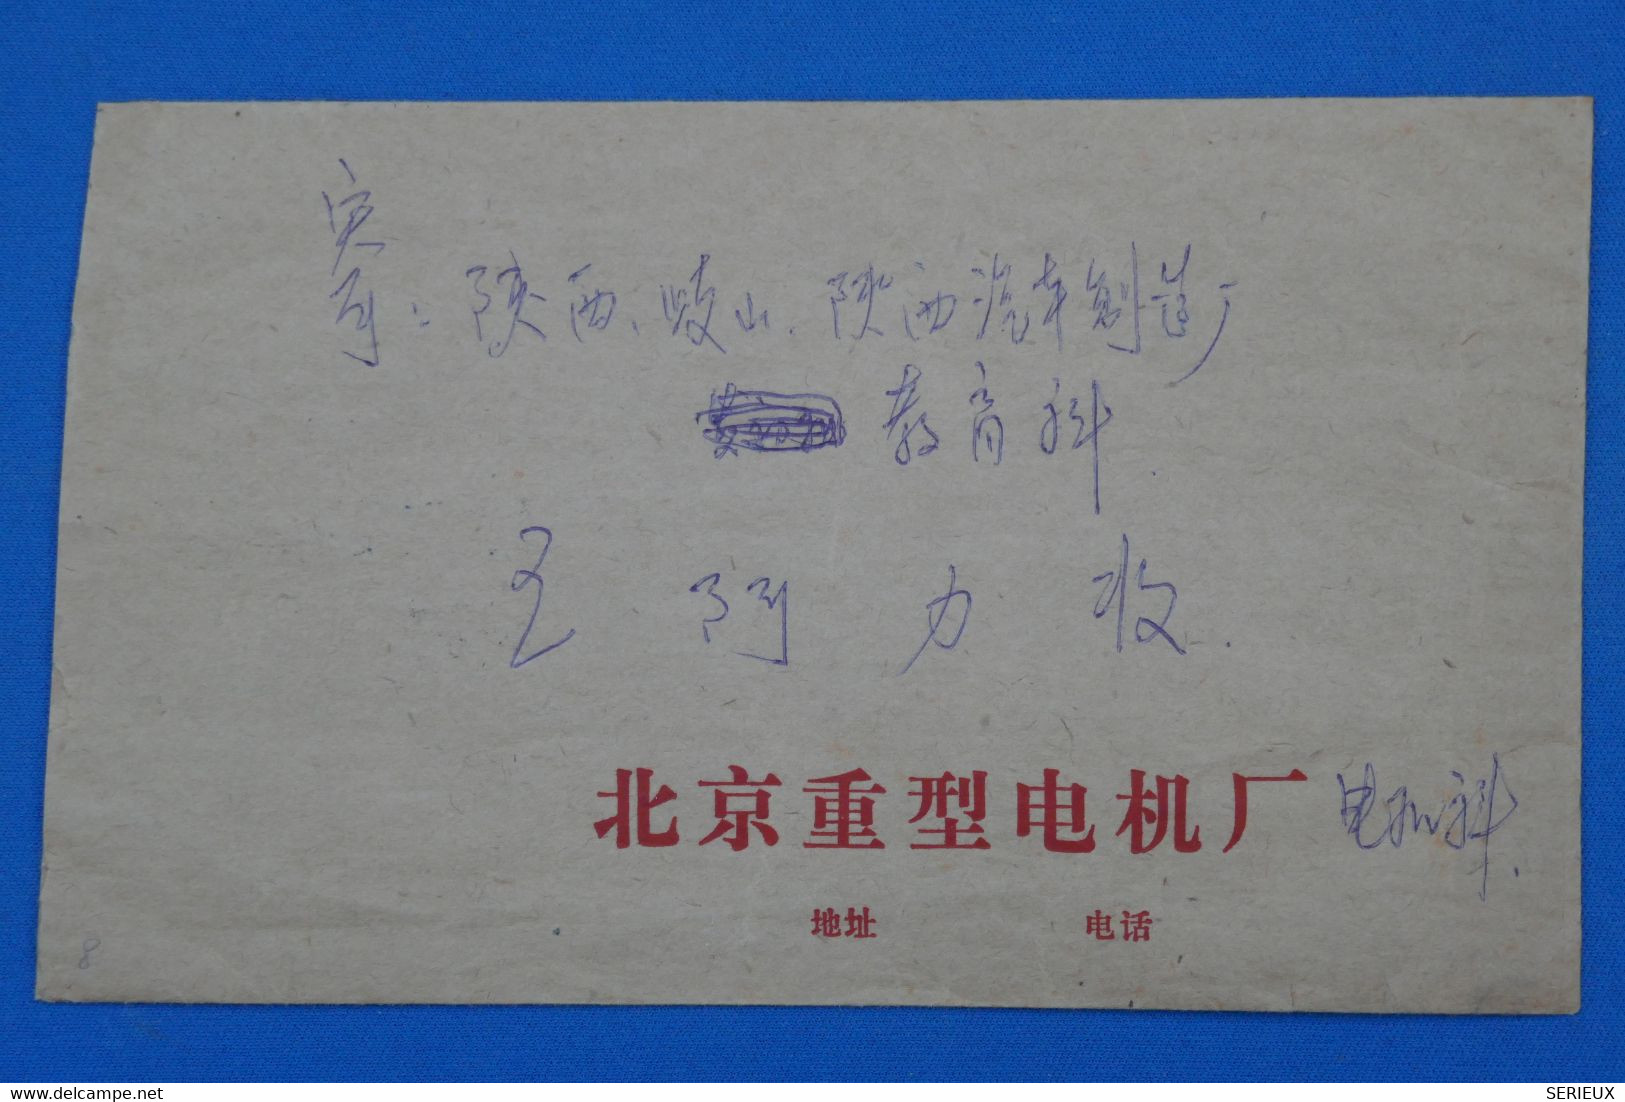 寄：陕西、岐山、陕西汽车制造厂
教育科.
王阿力收.
北京重型电机厂 电机科.
地址 电话
8
www.delcampe.net
SERIEUX